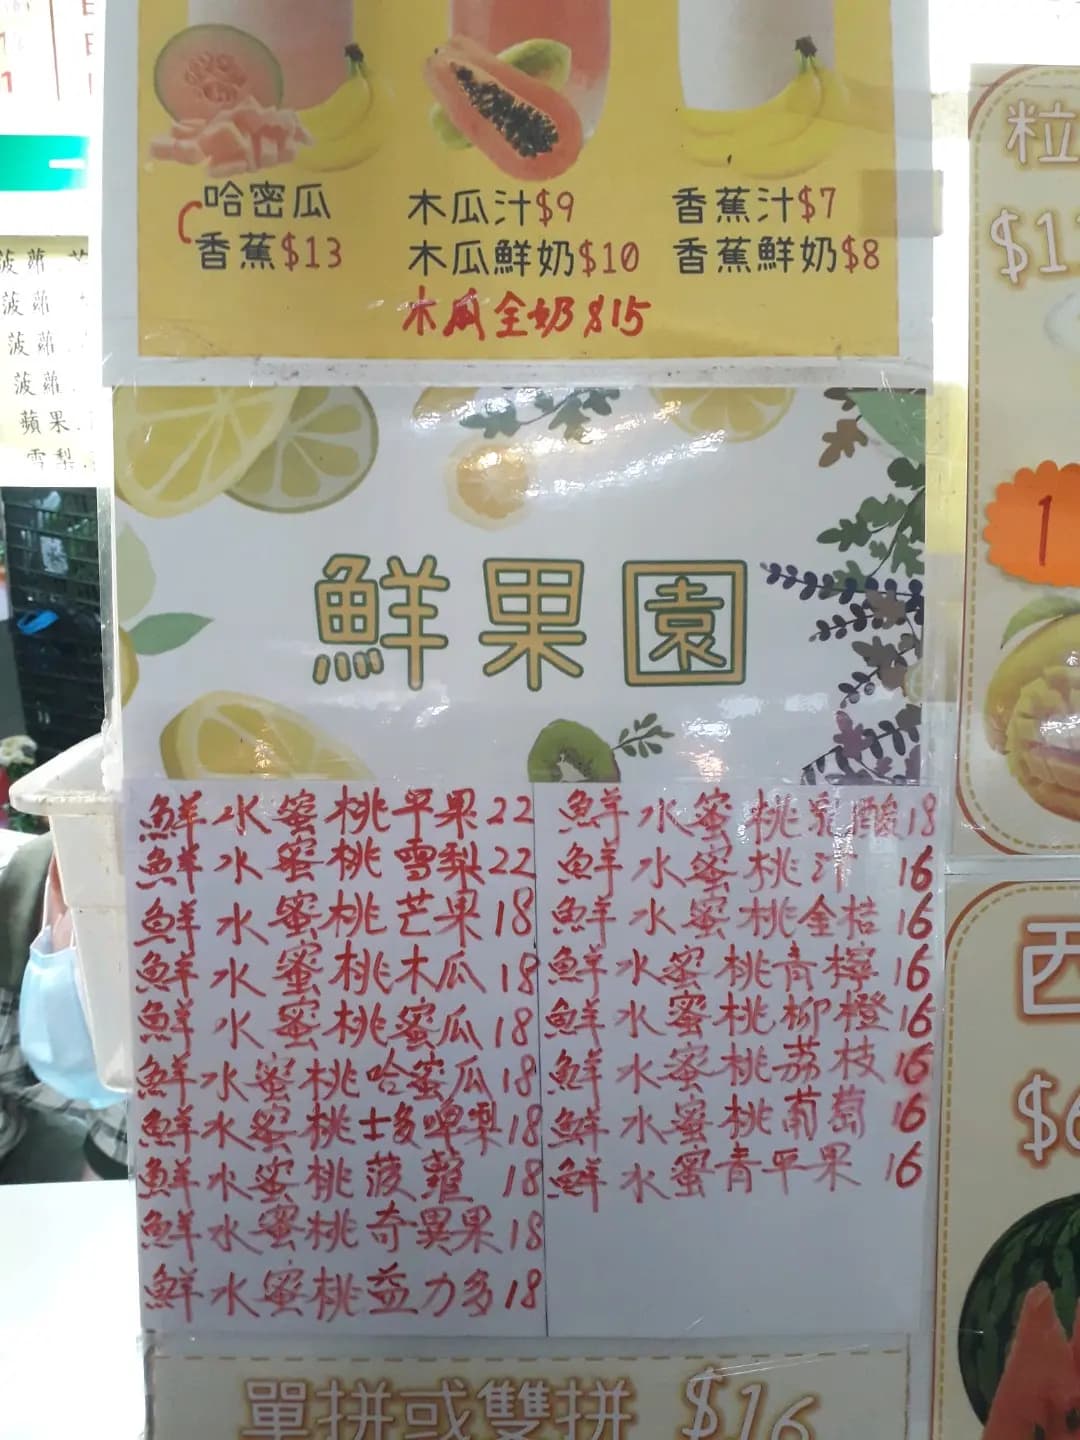 哈密瓜
香蕉$13
木瓜汁$9
木瓜鮮奶$10
香蕉汁$7
香蕉鮮奶$8
木瓜全奶$15
菠蘿
菠蘿
菠蘿
菠蘿
蘋果
雪梨
鮮果園
鮮水蜜桃平果22
鮮水蜜桃雪梨22
鮮水蜜桃芒果18
鮮水蜜桃木瓜18
鮮水蜜桃蜜瓜18
鮮水蜜桃哈蜜瓜18
鮮水蜜桃士多啤梨18
鮮水蜜桃菠蘿18
鮮水蜜桃奇異果18
鮮水蜜桃益力多18
鮮水蜜桃乳酸18
鮮水蜜桃汁16
鮮水蜜桃金桔16
鮮水蜜桃青檸16
鮮水蜜桃柳橙16
鮮水蜜桃荔枝16
鮮水蜜桃葡萄16
鮮水蜜青平果16
單拼或雙拼 $16
粒
$1
1
西
$6